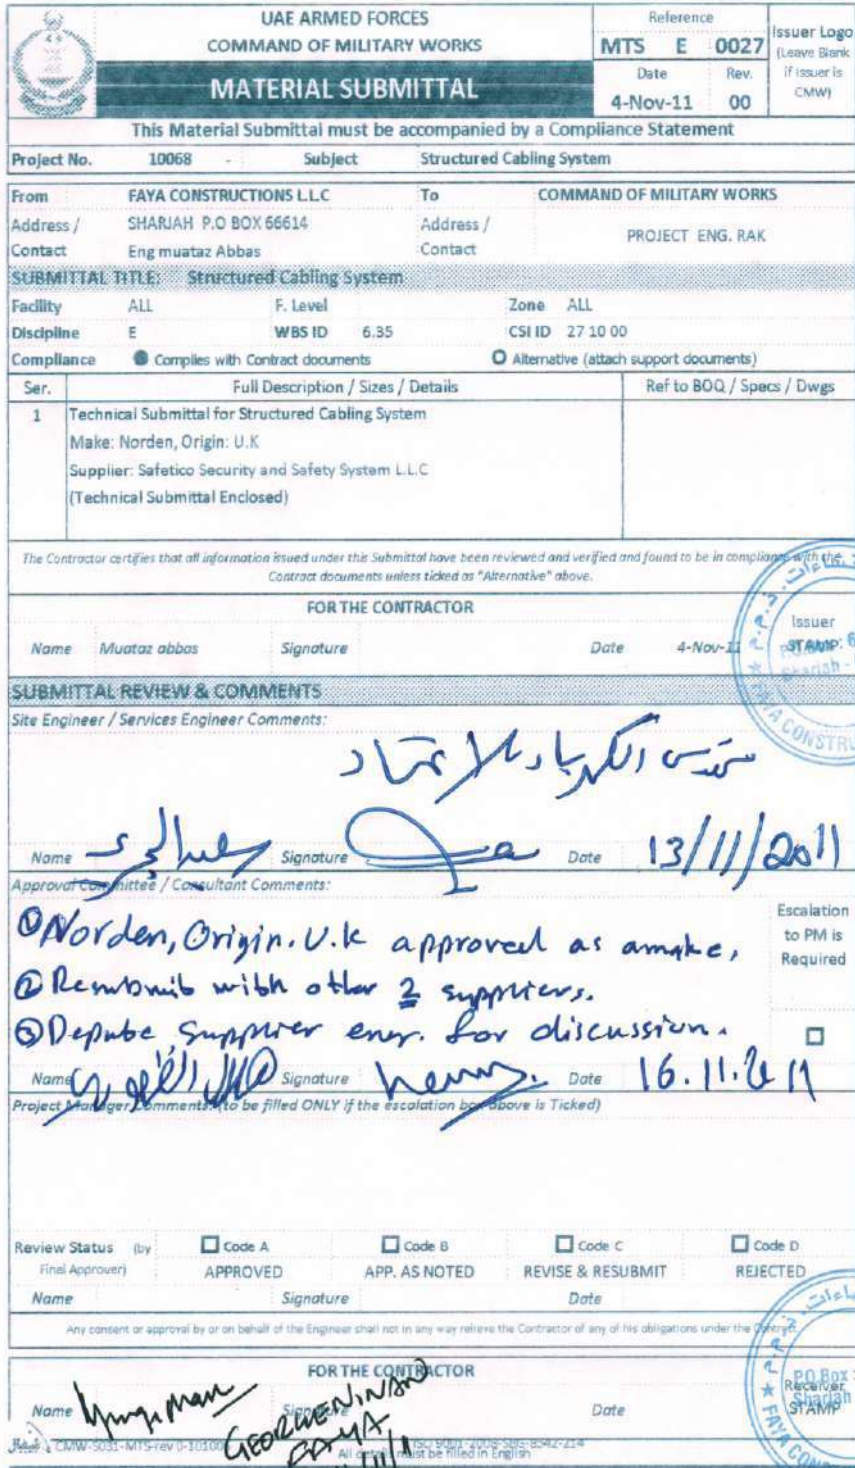 UAE ARMED FORCES
COMMAND OF MILITARY WORKS
MATERIAL SUBMITTAL
Reference
MTS E 0027
Date Rev.
4-Nov-11 00
Issuer Logo
(Leave Blank
if issuer is
CMW)
This Material Submittal must be accompanied by a Compliance Statement
Project No. 10068 - Subject Structured Cabling System
From FAYA CONSTRUCTIONS L.L.C To COMMAND OF MILITARY WORKS
Address / SHARJAH P.O BOX 66614 Address / PROJECT ENG. RAK
Contact Eng muataz Abbas Contact
SUBMITTAL TITLE: Structured Cabling System
Facility ALL F. Level Zone ALL
Discipline E WBS ID 6.35 CSI ID 27 10 00
Compliance Complies with Contract documents Alternative (attach support documents)
Ser. Full Description / Sizes / Details Ref to BOQ / Specs / Dwgs
1 Technical Submittal for Structured Cabling System
Make: Norden, Origin: U.K
Supplier: Safetico Security and Safety System L.L.C
(Technical Submittal Enclosed)
The Contractor certifies that all information issued under this Submittal have been reviewed and verified and found to be in compliance with the
Contract documents unless ticked as "Alternative" above.
FOR THE CONTRACTOR
Name Muataz abbas Signature Date 4-Nov-11
Issuer
STAMP
FAYA CONSTRU
SUBMITTAL REVIEW & COMMENTS
Site Engineer / Services Engineer Comments:
Name Signature Date 13/11/2011
Approval Committee / Consultant Comments:
① Norden, Origin. U.k approved as amake,
② Resubmit with other 2 suppliers.
③ Depute supplier engr. for discussion.
Escalation
to PM is
Required
Name Signature Date 16.11.2011
Project Manager Comments: (to be filled ONLY if the escalation box above is Ticked)
Review Status (by Code A Code B Code C Code D
Final Approver) APPROVED APP. AS NOTED REVISE & RESUBMIT REJECTED
Name Signature Date
Any consent or approval by or on behalf of the Engineer shall not in any way relieve the Contractor of any of his obligations under the Contract.
FOR THE CONTRACTOR
Name Signature Date
Receiver
STAMP
P.O.Box
Sharjah
FAYA CON
FAYA
CMW-S031-MTS-rev 0-10100
All details must be filled in English